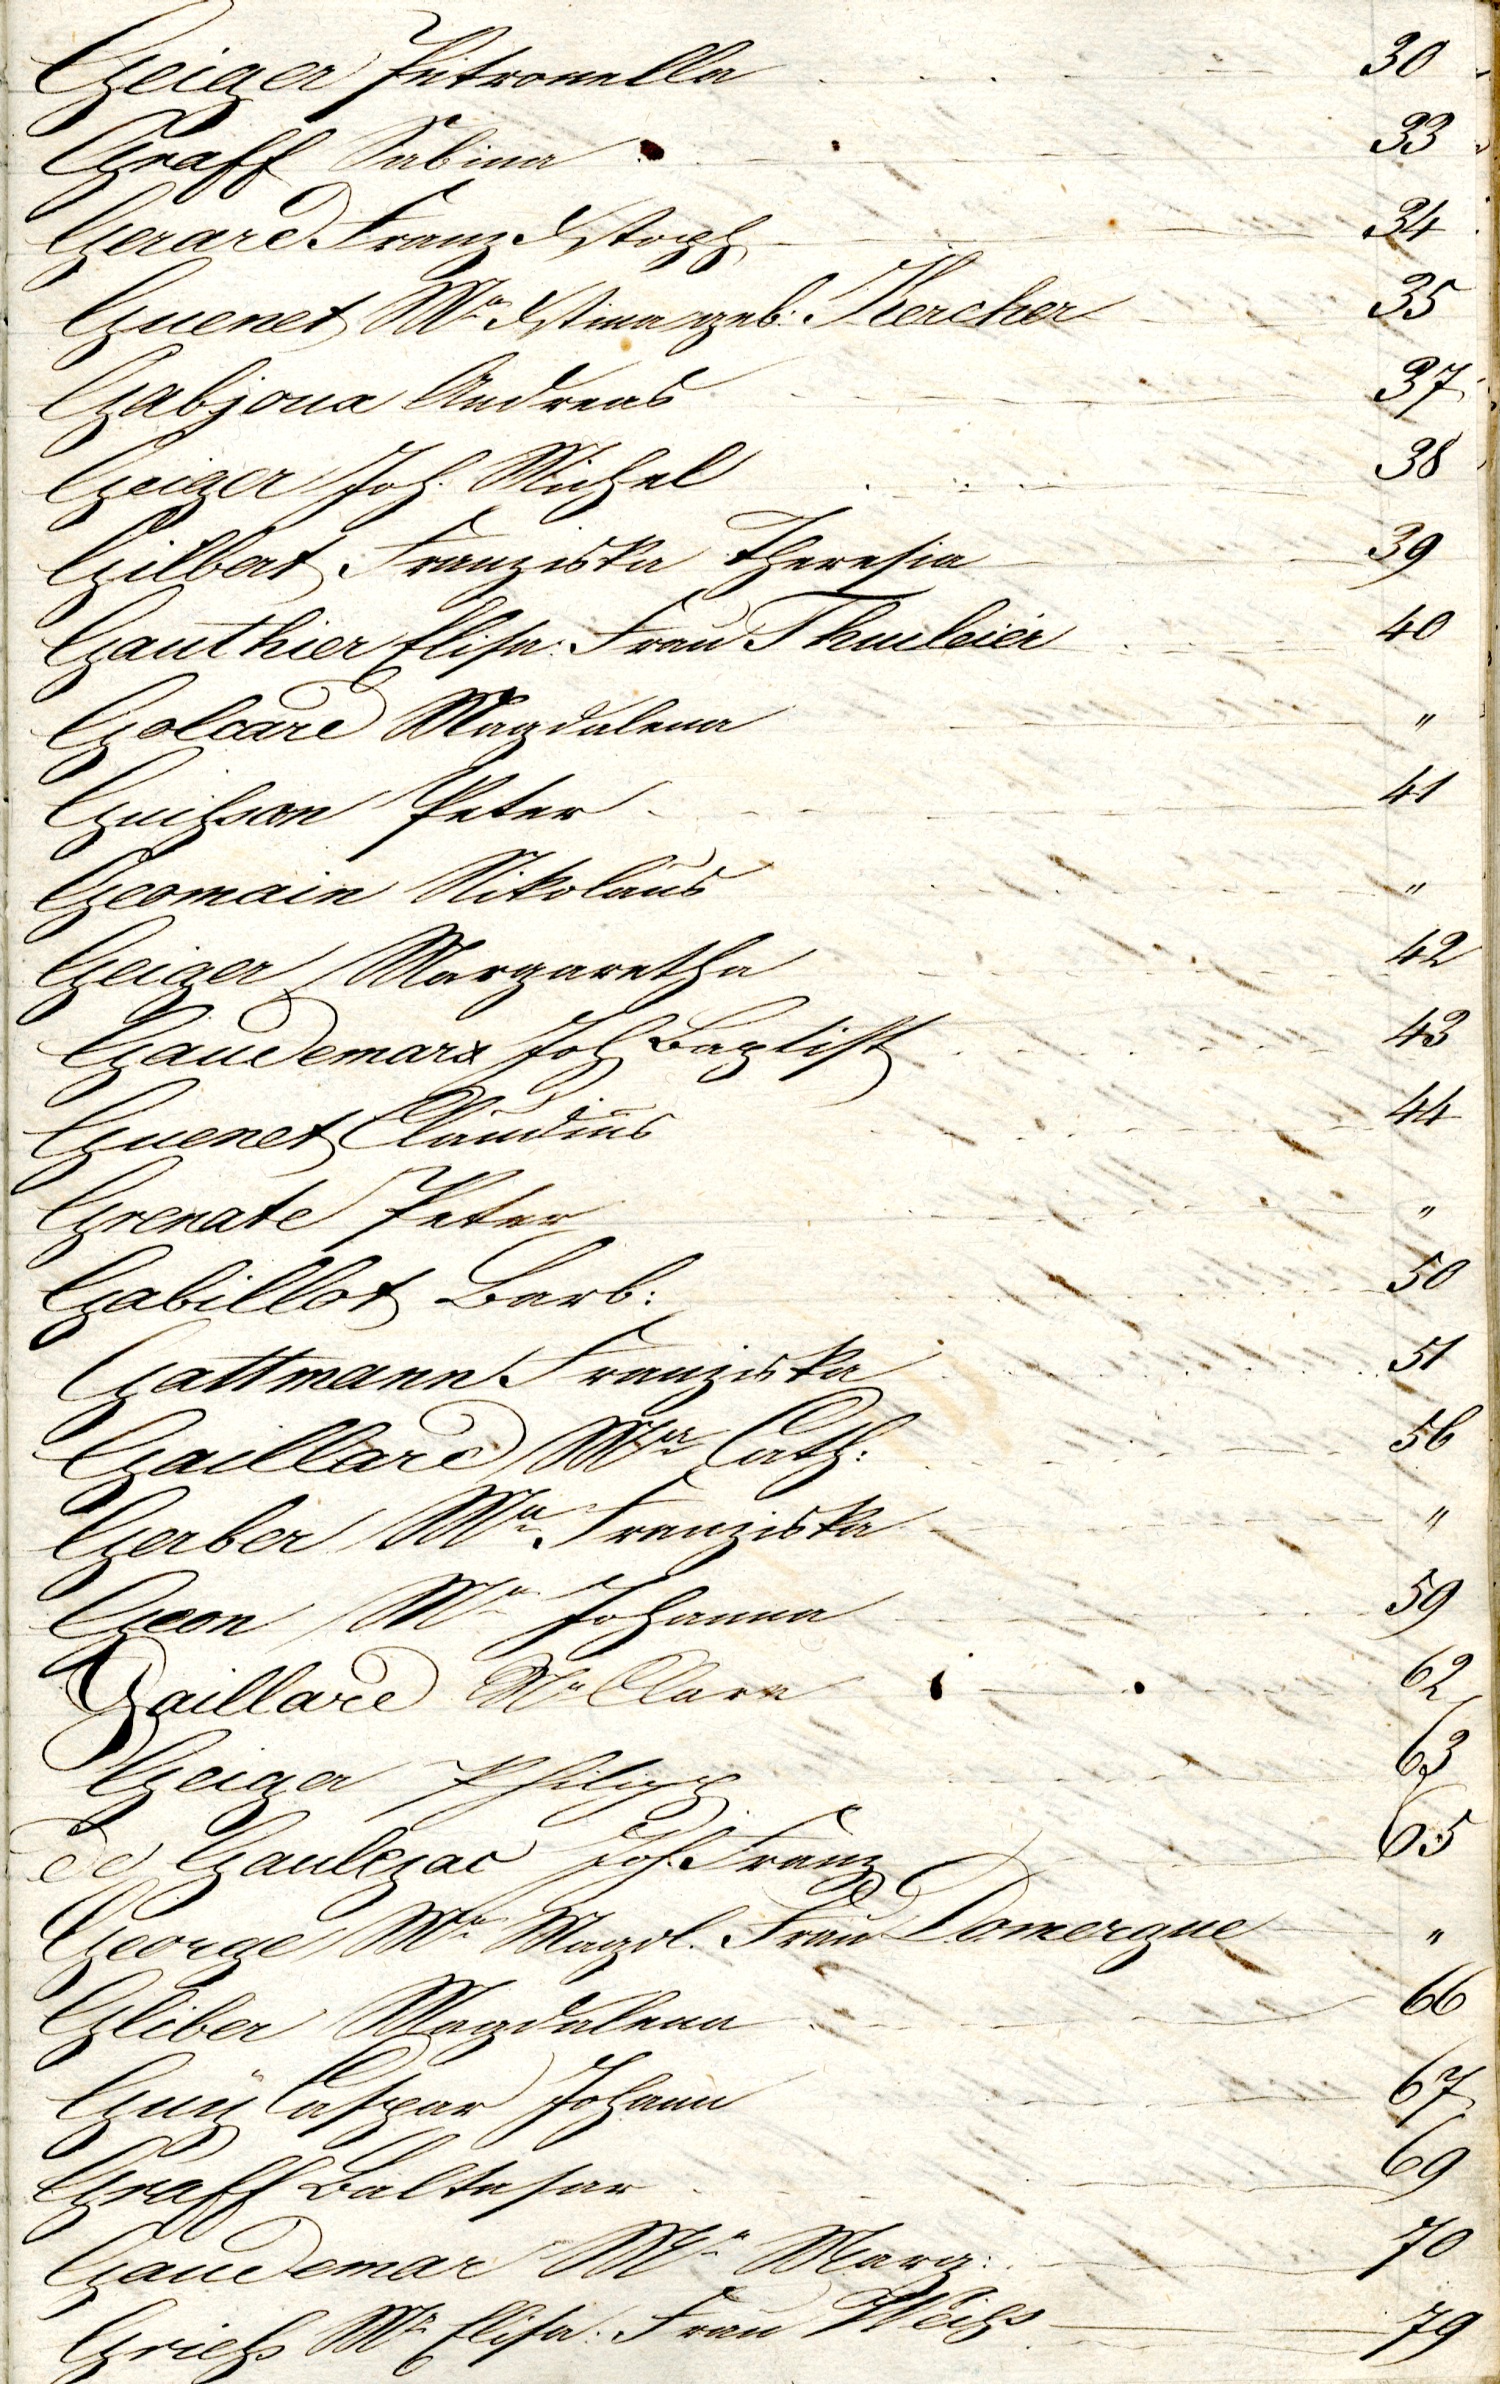 Geiger Petronella 30
Graff Sabina 33
Gerard Franz Xstoph 34
Guenet Mª Xstina geb: Kercher 35
Gabjoux Andreas 37
Geiger Joh. Michel 38
Gilbert Franziska Theresia 39
Gauthier Elisa: Frau 40
Golcard Magdalena "
Peter 41
Geomain Nikolaus "
Geiger Margaretha 42
Gaudemarx Joh Baptist 43
Guenet Claudius 44
Grenate Peter "
Gabillot Barb: 50
Gattmann Franziska 51
Gaillard Mª Cath: 56
Gerber Mª Franziska "
Geon Mª Johanna 59
Gaillard Mª Clara 62
Geiger Philipp 63
de Gaulejac Joh. Franz 65
George Mª Magdl. Frau Domergue "
Gliber Magdalena 66
Guÿ Caspar Johann 67
Graff Baltasar 69
Gaudemar Mª Marg: 70
Mª Elisa: Frau 79